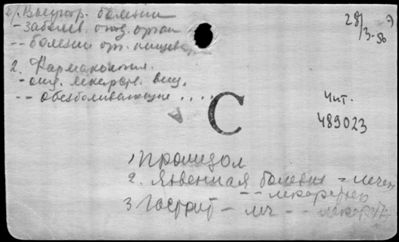 1. Внутр. болезни
- заболев. отд. орган
-- болезни орг. пищев.
2. Фармакология.
- отд. лекарств. вещ.
-- обезболивающие ....
28/3-56
Э
С
Чит.
489023
1, Промедол
2. Язвенная болезнь - лечен
-- лекарствен
3 Гастрит - лч -- лекарств